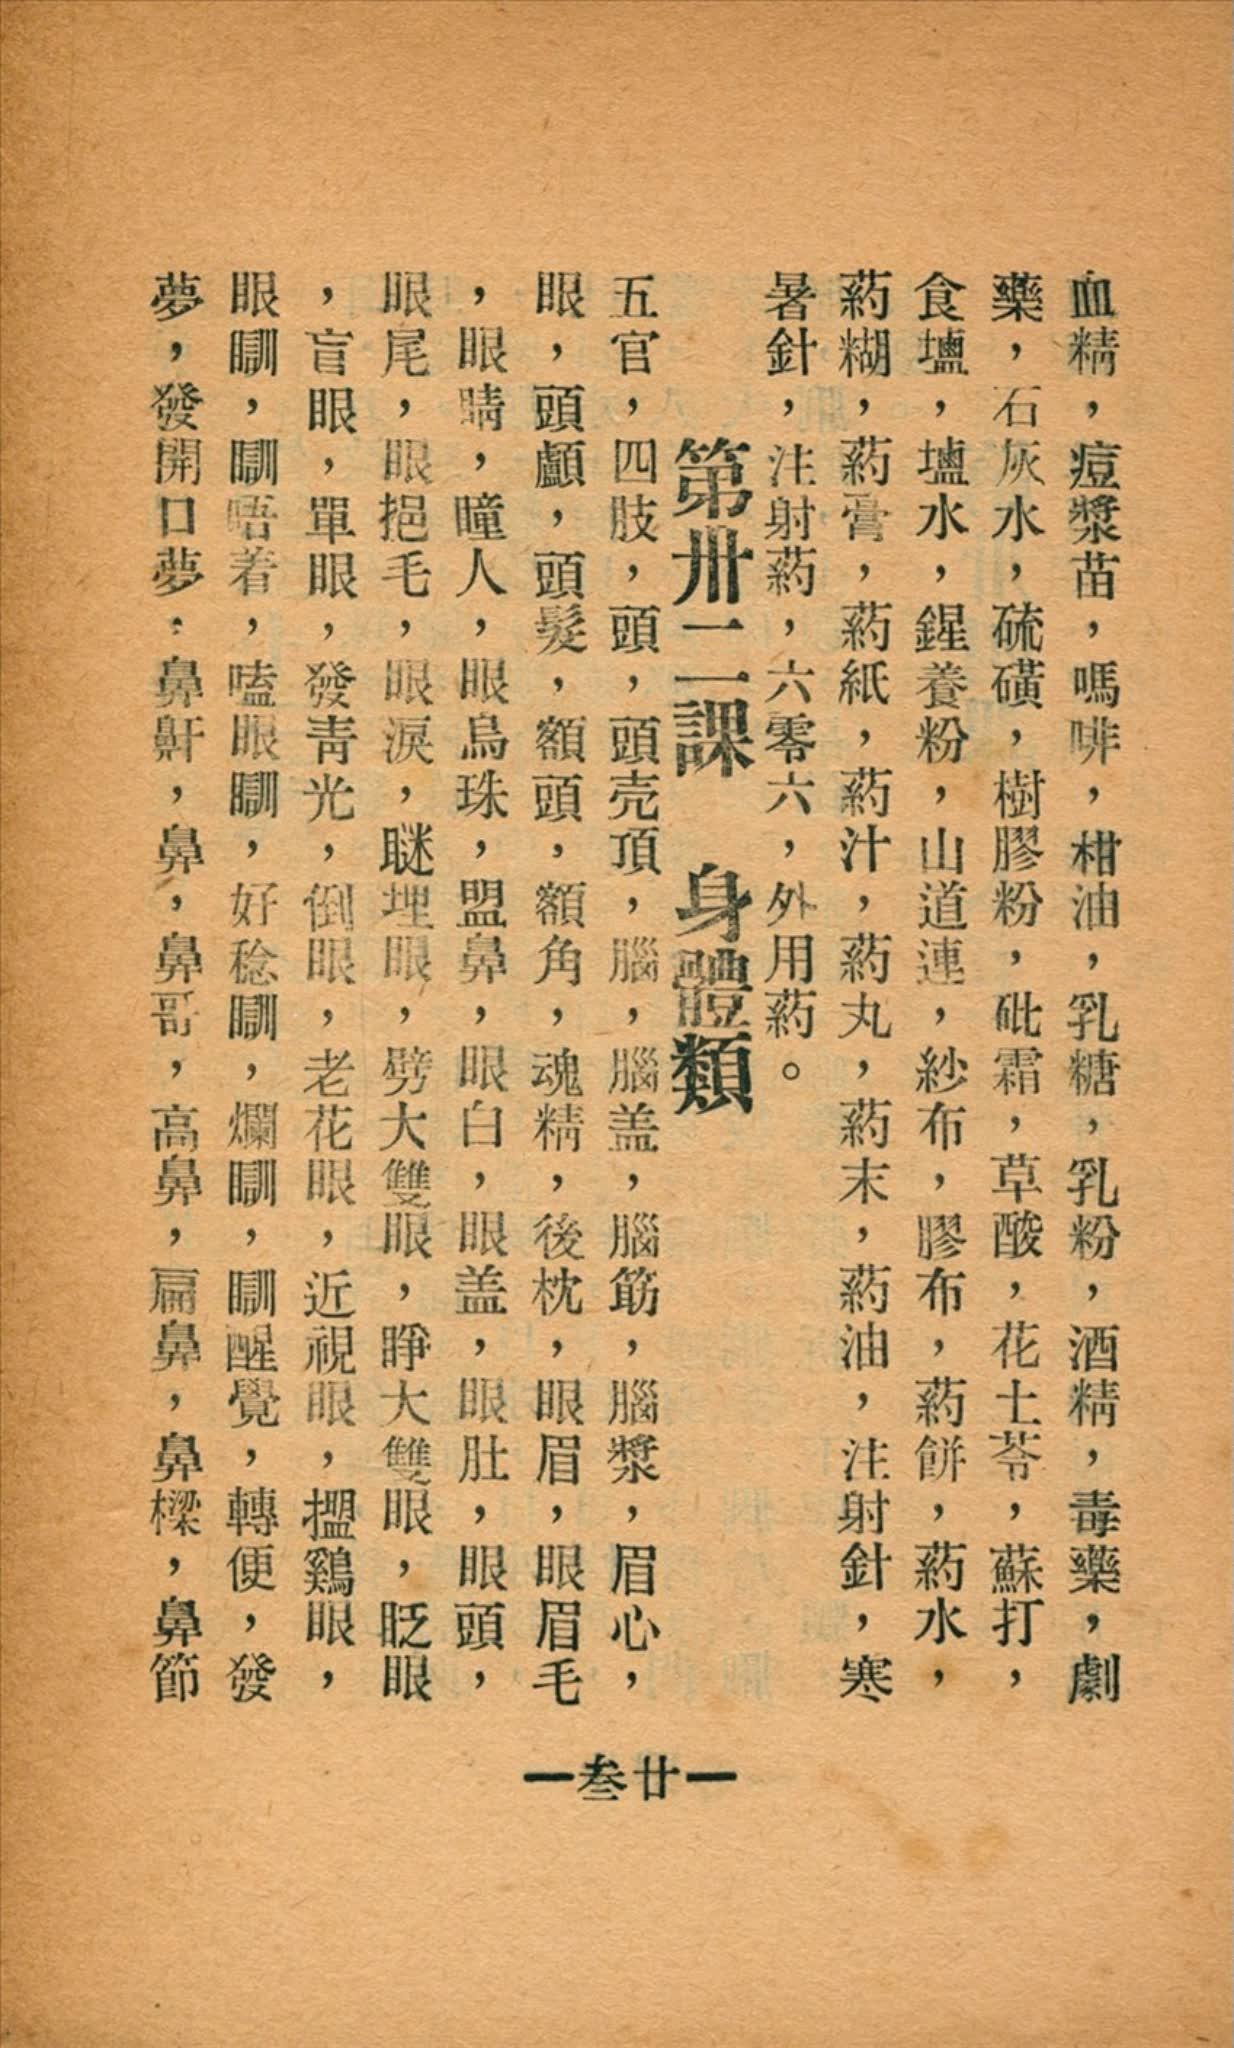 血精，痘漿苗，嗎啡，柑油，乳糖，乳粉，酒精，毒藥，劇
藥，石灰水，硫磺，樹膠粉，砒霜，草酸，花士苓，蘇打，
食壚，壚水，鍟養粉，山道連，紗布，膠布，葯餅，葯水，
葯糊，葯膏，葯紙，葯汁，葯丸，葯末，葯油，注射針，寒
暑針，注射葯，六零六，外用葯。
第卅二課　身體類
五官，四肢，頭，頭壳頂，腦，腦盖，腦筋，腦漿，眉心，
眼，頭顱，頭髮，額頭，額角，魂精，後枕，眼眉，眼眉毛
，眼睛，瞳人，眼烏珠，盟鼻，眼白，眼盖，眼肚，眼頭，
眼尾，眼挹毛，眼淚，瞇埋眼，劈大雙眼，睜大雙眼，眨眼
，盲眼，單眼，發青光，倒眼，老花眼，近視眼，搵鷄眼，
眼瞓，瞓唔着，嗑眼瞓，好稔瞓，爛瞓，瞓醒覺，轉便，發
夢，發開口夢．鼻鼾，鼻，鼻哥，高鼻，扁鼻，鼻樑，鼻節
—叁廿—